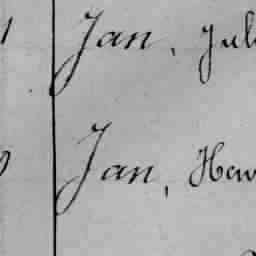 Jan, Jul
Jan, Hen